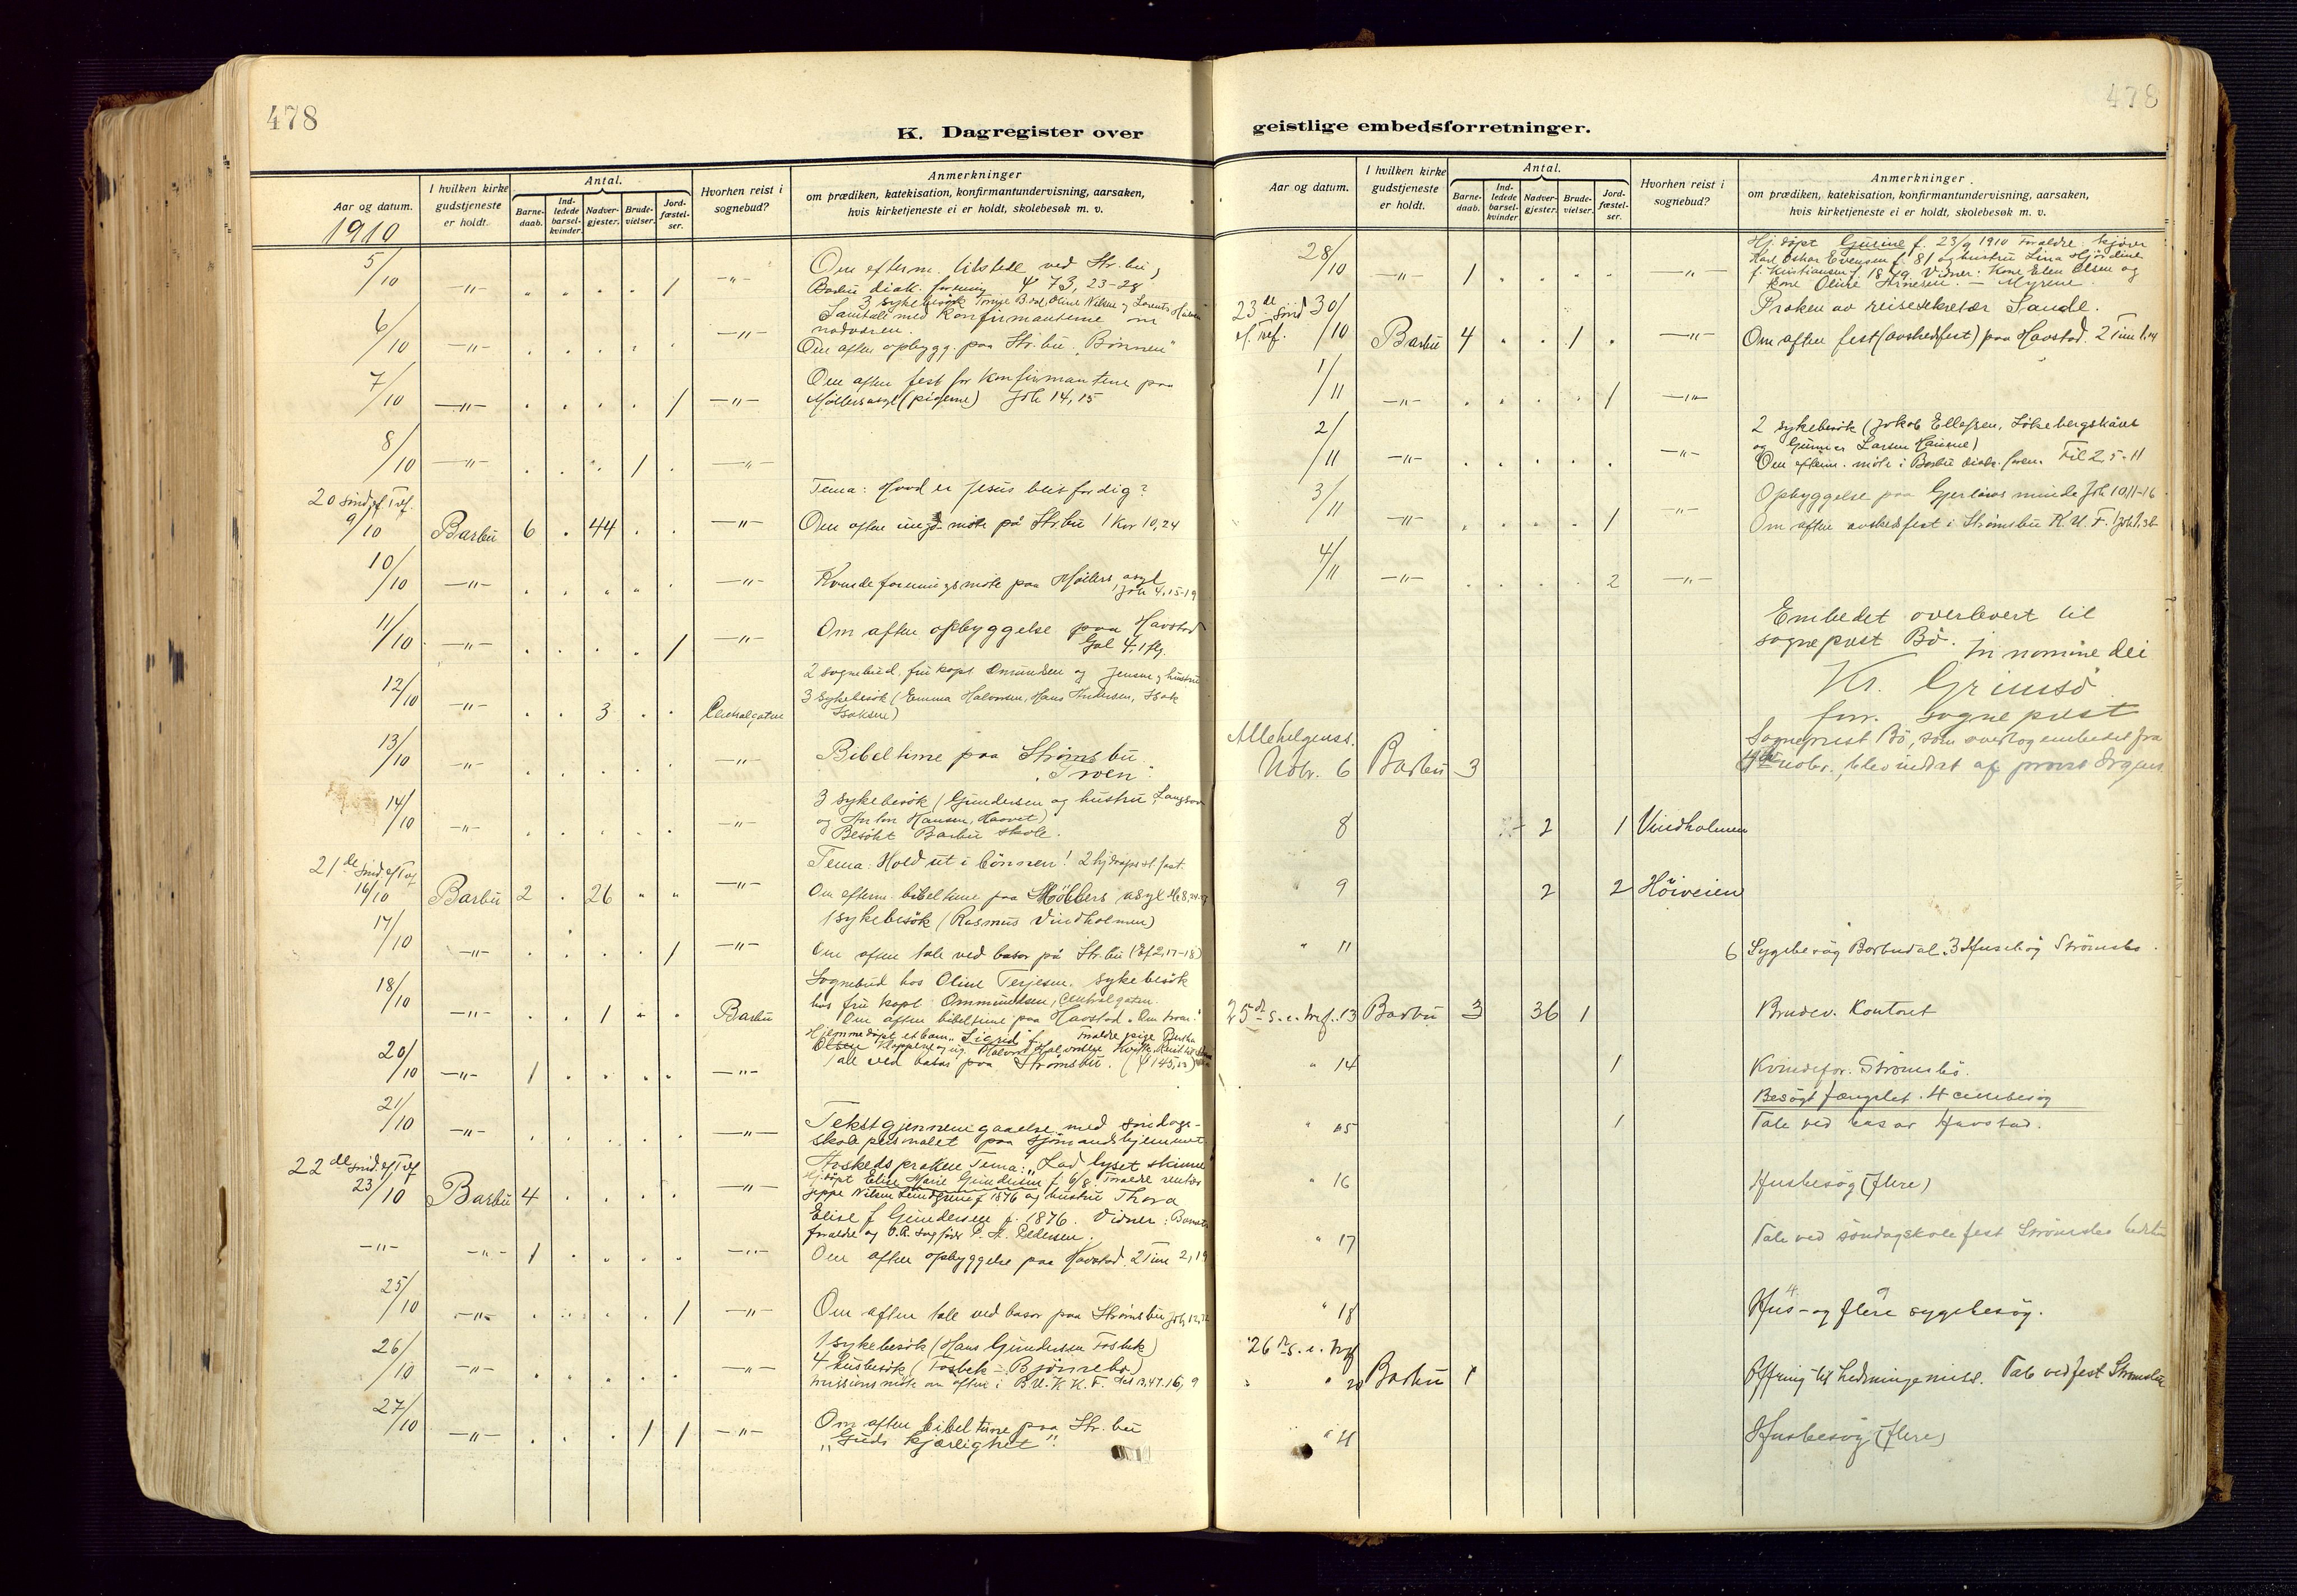 478
K. Dagregister over
Aar og datum.
1910
I hvilken kirke
gudstjeneste
er holdt.
Antal.
Barne-
daab.
Ind-
ledede
barsel-
kvinder.
Nadver-
gjester.
Brude-
vielser.
Jord-
fæstel-
ser.
Hvorhen reist i
sognebud?
Anmerkninger
om prædiken, katekisation, konfirmantundervisning, aarsaken,
hvis kirketjeneste ei er holdt, skolebesøk m. v.
5/10 —"— 1 —"— Om efterm. tilstede ved Str.bu,
Barbu diak. forening Ψ 73, 23-28
3 sykebesøk
6/10 —"— —"— Samtale med konfirmanterne om
nadveren.
Om aften opbygg. paa Str.bu "Bønnen"
7/10 —"— 1 —"— Om aften fest for konfirmantene paa
Møllers asyl (pigerne) Joh 14, 15
8/10 —"— 1 —"—
20 sønd. ef. Tref. Tema: Hvad er Jesus blit for dig?
9/10 Barbu 6 44 —"— Om aften møte på Str.bu 1 Kor 10,24
10/10 —"— —"— Kvindeforeningsmøte paa Møllers asyl
Joh 4, 15-19
11/10 —"— 1 —"— Om aften opbyggelse paa Havstad
Gal 4, 1 flg.
12/10 —"— 3 Centralgaten 2 sognebud, fru kapt. Omundsen og Jensen, hustru
3 sykebesøk (Emma Halvorsen, Hans Andersen, Isak
Isaksen)
13/10 —"— —"— Bibeltime paa Strømsbu
"Troen".
14/10 —"— —"— 3 sykebesøk (Gundersen og hustru,
og Anton Hansen,
Besøkt Barbu skole.
21de sønd. ef Tref Tema: Hold ut i bønnen!
16/10 Barbu 2 26 —"— Om efterm. bibeltime paa Møllers asyl
17/10 —"— 1 —"— 1 sykebesøk (Rasmus Vindholmen)
Om aften tale ved basar på Str.bu (Ef 2, 17-18)
18/10 —"— 1 Barbu Sognebud hos Oline Terjesen. Sykebesøk
hos fru kapt. Ommundsen, Centralgaten.
Om aften bibeltime paa Havstad
20/10 —"— 1 —"— Hjemmedøpt et barn "Sigrid"
Tale ved basar paa Strømsbu.
21/10 —"— —"— Tekstgjennemgaaelse med søndags-
skolepersonalet paa Sjømandshjemmet
22de sønd. ef Tref Avskedsprøken Tema: "Lad lyset skinne
23/10 Barbu 4 —"— Hj.døpt Elise Marie Gundersen f. 6/8. Foraldre
Jeppe Nilsen f 1876 og hustru Thora
Elise f Gundersen f. 1876. Vidner: Barnets
foraldre og O.R. sagfører P. A. Pedersen.
—"— —"— 1 —"— Om aften opbyggelse paa Havstad. 2 Tim 2, 19
25/10 —"— 1 —"— Om aften tale ved basar paa Strømsbu Joh 12
26/10 —"— —"— 1 sykebesøk (Hans Gundersen Fosbæk)
4 husbesøk (Fosbæk - Bjønnebo)
missionsmøte om aften i B.U.K.K.F.
27/10 —"— 1 1 —"— Om aften bibeltime paa Str.bu
"Guds kjærlighet".
478
geistlige embedsforretninger.
Aar og datum.
I hvilken kirke
gudstjeneste
er holdt.
Antal.
Barne-
daab.
Ind-
ledede
barsel-
kvinder
Nadver-
gjester.
Brude-
vielser.
Jord-
fæstel-
ser.
Hvorhen reist i
sognebud?
Anmerkninger
om prædiken, katekisation, konfirmantundervisning, aarsaken,
hvis kirketjeneste ei er holdt, skolebesøk m. v.
28/10 —"— 1 —"— Hj. døpt Gurine f. 23/9 1910 Foraldre: kjører
Karl Oskar Evensen f. 81 og hustru Lina Hjørdine
f. Kristiansen f. 1879. Vidner: Kone Elen Olsen og
kone Oline Arnesen. — Myrene.
23de sønd Prøken av reisesekretær Sande.
30/10 Barbu 4 1 —"— Om aften fest (avskedsfest) paa Havstad. 2 Tim 1,
1/11 —"— 1 —"—
2/11 —"— —"— 2 sykebesøk (Jakob Ellefsen,
og Gunner Larsen
Om efterm. møte i Barbu diak. foren. Fil 2 5-11
3/11 —"— 1 —"— Opbyggelse paa Gjerløvs minde Joh 10, 11-16
Om aften avskedsfest i Strømsbu K.U.F.
4/11 —"— 2 —"—
Embedet overlevert til
sogneprest Bø. In nomine dei
Kr. Grimsø
forr. sogneprest
Allehelgenss. Sogneprest Bø, som overtog embedet fra
Nobr. 6 Barbu 3 nobr., blev indsat af provst
8 2 1 Vindholmen
" 9 2 2 Høiveien
" 11 6 Sygebesøg Barbudal. 3 Husbesøg Strømsbo.
25de s. e. tref. 13 Barbu 3 36 1 Brudev. Kontoret
" 14 1 Kvindefor. Strømsbo.
Besøgt fængslet. 4 cellebesøg
" 15 1 Tale ved basar Havstad.
" 16 Husbesøg (flere)
" 17 Tale ved søndagskolefest Strømsbo
" 18 Hus- og flere sygebesøg.
26de s. e. tref
" 20 Barbu 1 Offring til hedningemiss. Tale ved fest Strømsbu
" Husbesøg (flere)